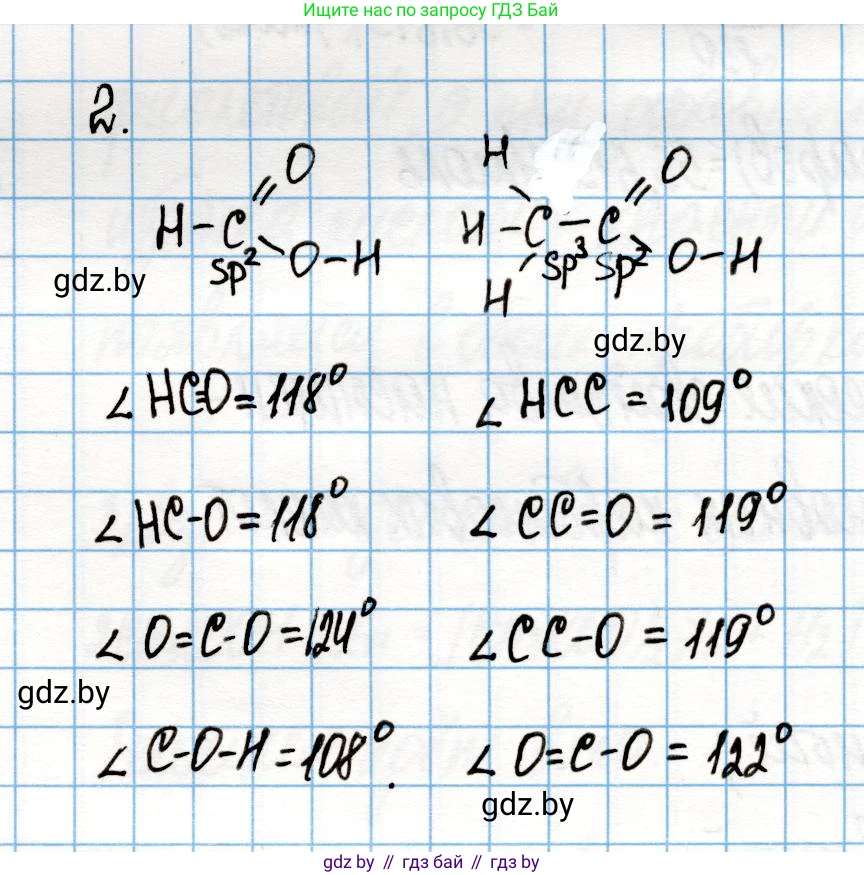 Ищите нас по запросу ГДЗ Бай
2.
H O H O
H-C H-C-C
sp² O-H sp³ sp² O-H
gdz.by H
gdz.by
∠HC=O=118° ∠HCC=109°
∠HC-O=118° ∠CC=O=119°
∠O=C-O=124° ∠CC-O=119°
gdz.by
∠C-O-H=108°. ∠O=C-O=122°
gdz.by
gdz.by // гдз бай // gdz.by